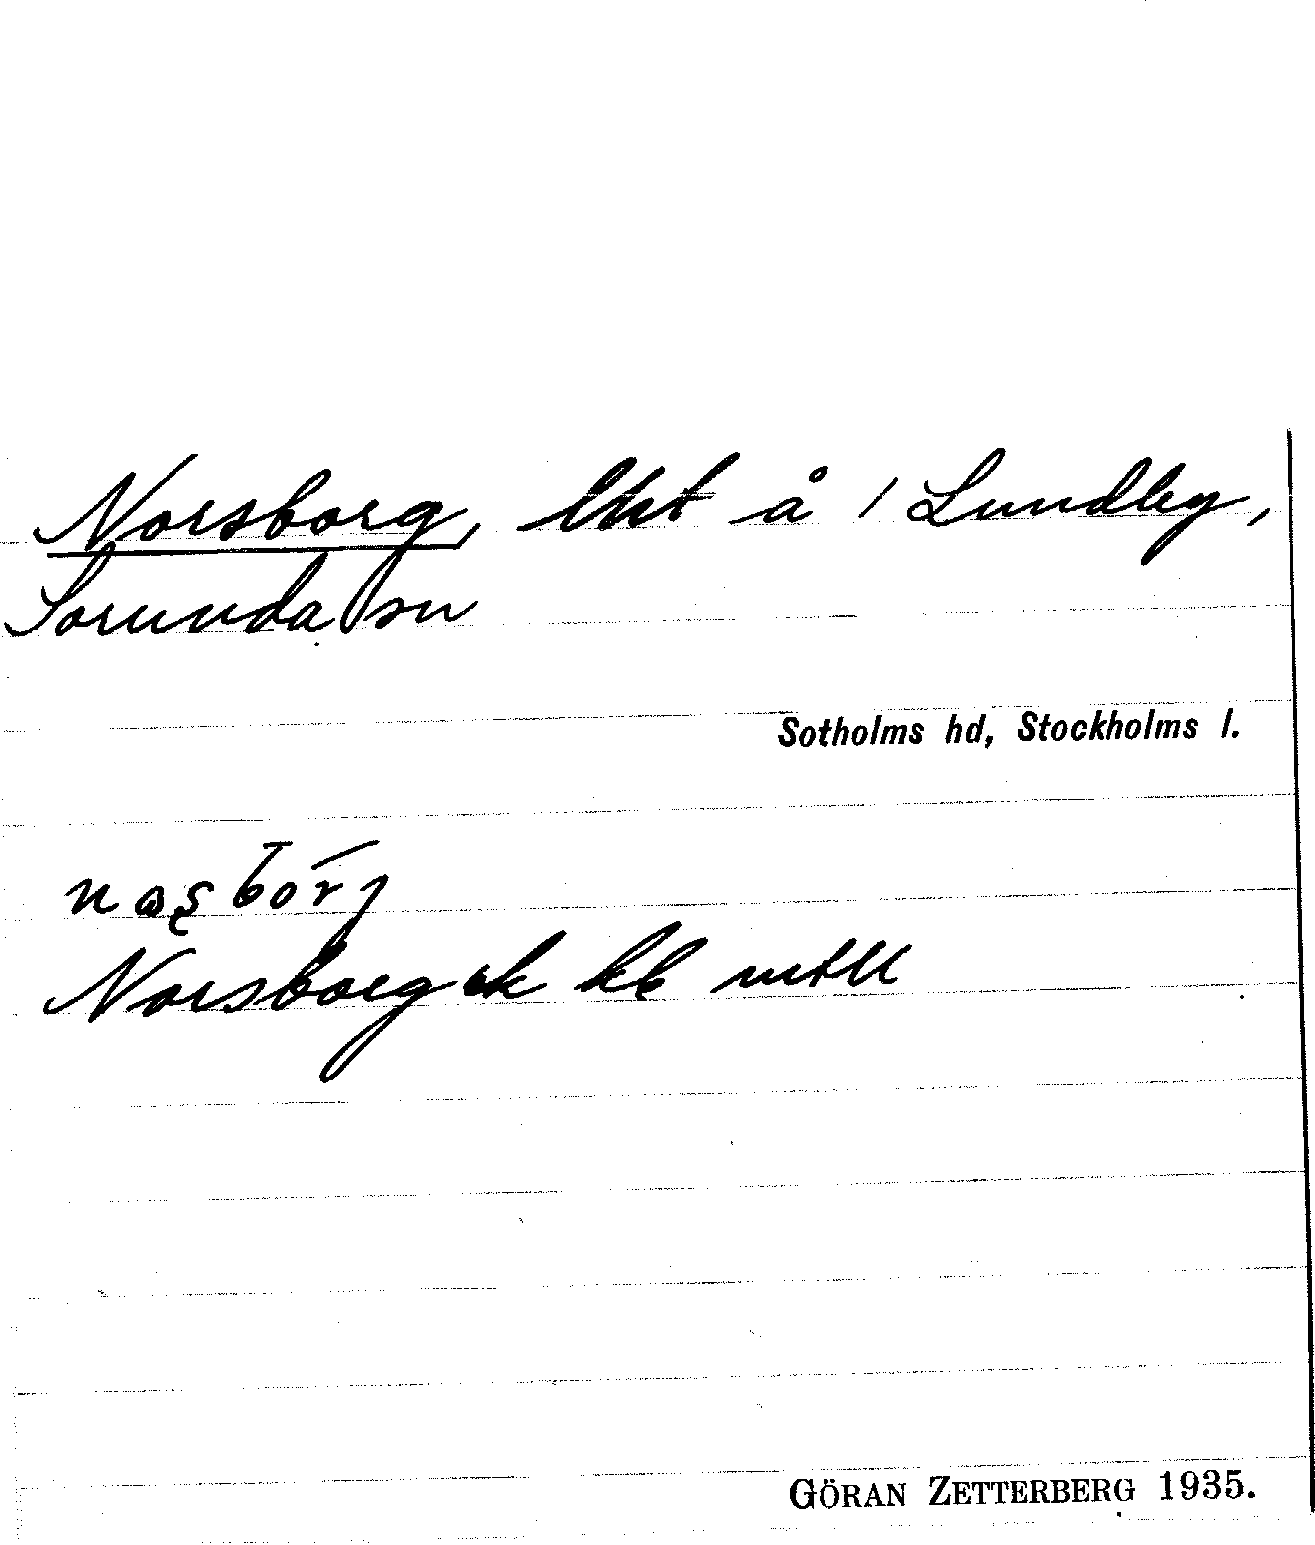 Norsborg, lht å 1 Lundby,
Sorunda sn
Sotholms hd, Stockholms l.
Norsborg ek kb mtll
GÖRAN ZETTERBERG 1935.